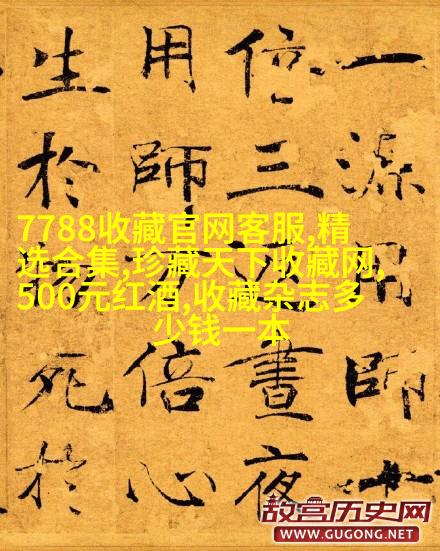 一源用師十
倍三晝夜
用師倍心
生於死於
7788收藏官网客服,精
选合集,珍藏天下收藏网,
500元红酒,收藏杂志多
少钱一本
故宫历史网
WWW.GUGONG.NET